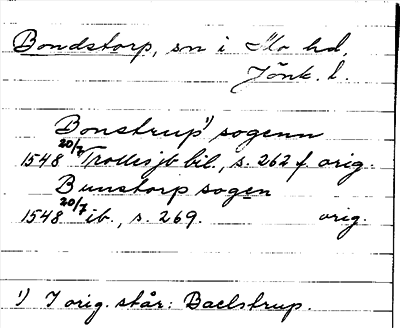 Bondstorp, sn i Mo hd,
Jönk. l.
Bonstrup¹) sogenn
1548 20/7 Trolles jb bil., s. 262 f. orig.
Bunstorp sogen
1548 20/7 ib., s. 269. orig.
¹) I orig. står: Baelstrup.